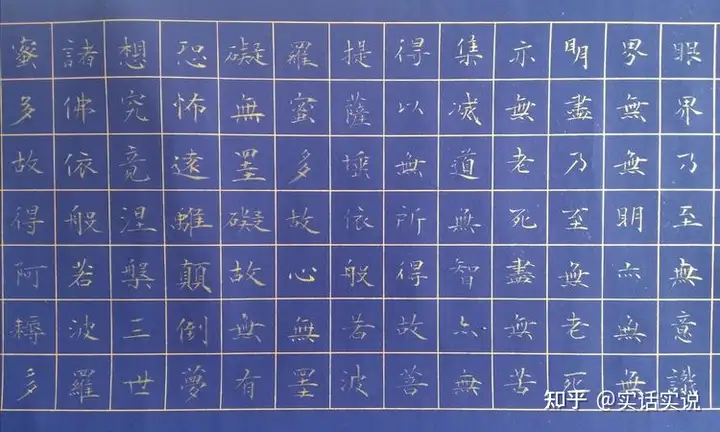 眼界乃至無意識
界無無明亦無無
明盡乃至無老死
亦無老死盡無苦
集滅道無智亦無
得以無所得故菩
提薩埵依般若波
羅蜜多故心無罣
礙無罣礙故無有
恐怖遠離顛倒夢
想究竟涅槃三世
諸佛依般若波羅
蜜多故得阿耨多
知乎 @实话实说